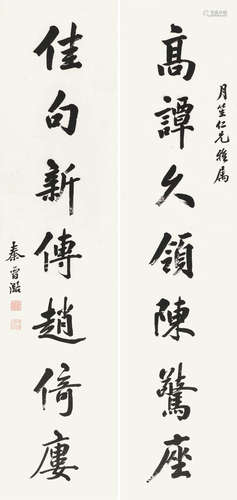 月笙仁兄雅属
高譚久領陳驚座
佳句新傳趙倚廔
秦雪